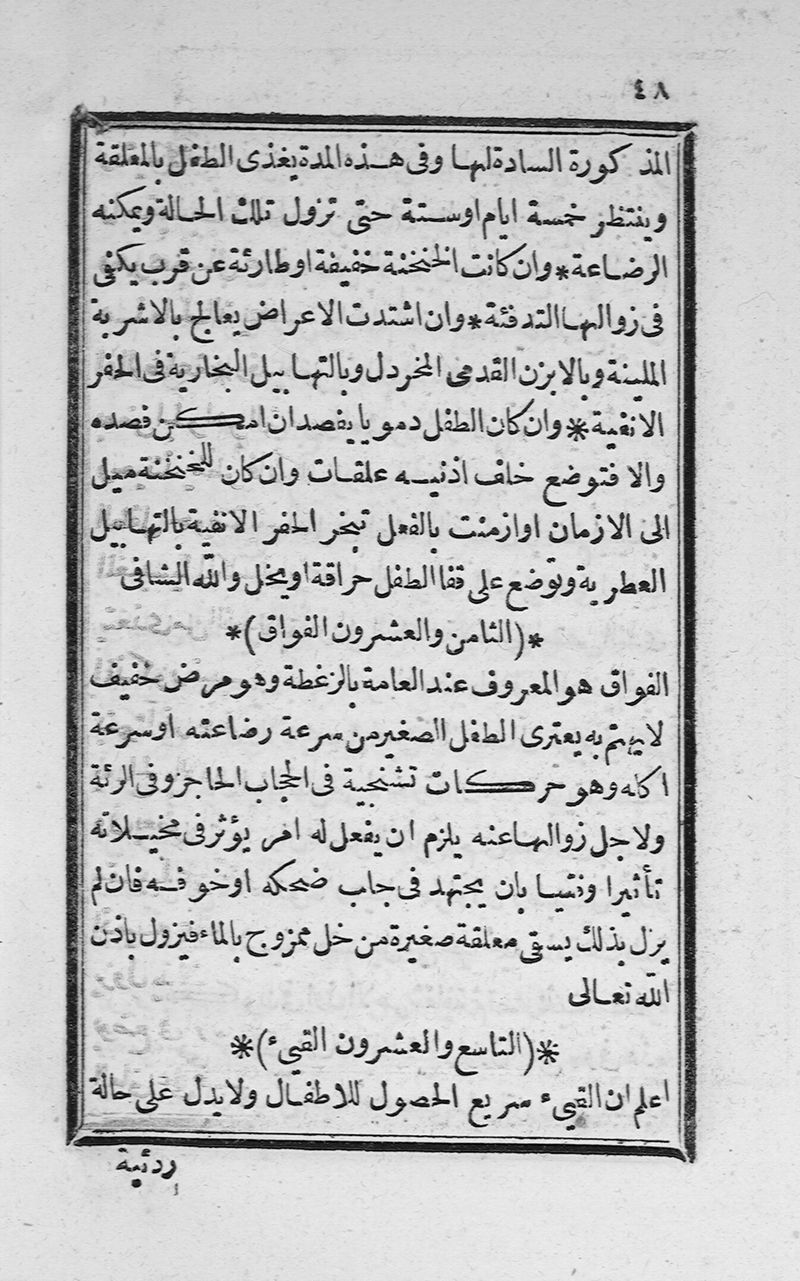 ٤٨
المذكورة السادة لها وفى هذه المدة يغذى الطفل بالمعلقة
وينتظر خمسة ايام اوستة حتى تزول تلك الحالة ويمكنه
الرضاعة * وان كانت الخنخنة خفيفة اوطارئة عن قرب يكفى
فى زوالها التدفئة * وان اشتدت الاعراض يعالج بالاشربة
الملينة وبالابزن القدمى المخردل وبالتهابيل البخارية فى الحفر
الانفية * وان كان الطفل دمويا يفصد ان امكن فصده
والا فتوضع خلف اذنيه علقات وان كان للخنخنة ميل
الى الازمان اوازمنت بالفعل تبخر الحفر الانفية بالتهابيل
العطرية وتوضع على قفا الطفل حراقة اويخل والله الشافى
*(الثامن والعشرون الفواق)*
الفواق هو المعروف عند العامة بالزغطة وهو مرض خفيف
لايهتم به يعترى الطفل الصغير من سرعة رضاعته اوسرعة
اكله وهو حركات تشنجية فى الحجاب الحاجز وفى الرئة
ولاجل زوالها عنه يلزم ان يفعل له امر يؤثر فى مخيلاته
تأثيرا وقتيا بان يجتهد فى جاب ضحكه اوخوفه فان لم
يزل بذلك يسقى معلقة صغيرة من خل ممزوج بالماء فيزول باذن
الله تعالى
*(التاسع والعشرون القيىء)*
اعلم ان القيىء سريع الحصول للاطفال ولايدل على حالة
ردئية